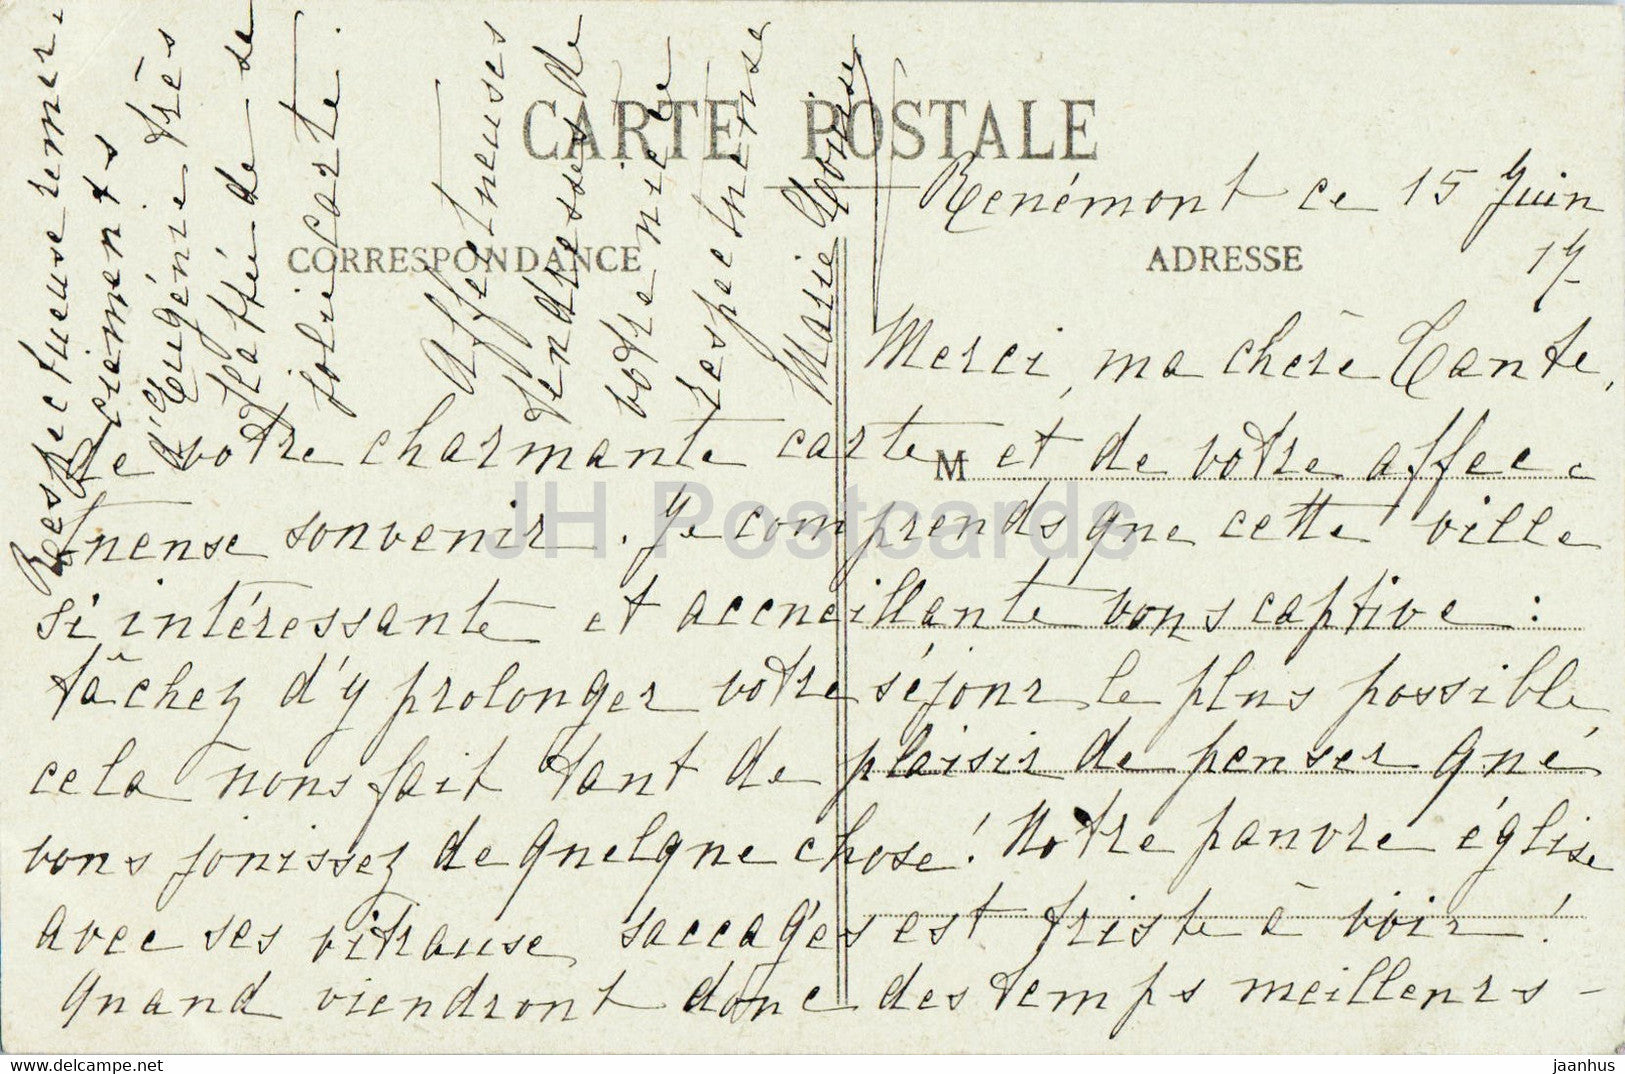 CARTE POSTALE
CORRESPONDANCE
ADRESSE
Renémont ce 15 Juin
17
Merci, ma chère Tante,
de votre charmante carte et de votre affec-
M
tueuse souvenir. Je comprends que cette ville
si intéressante et accueillante vous captive :
tâchez d'y prolonger votre séjour le plus possible,
cela nous fait tant de plaisir de penser que
vous jouissez de quelque chose! Notre pauvre église
avec ses vitrause saccagés est triste à voir!
Quand viendront donc des temps meilleurs -
Affectueuses
tendresses de
votre nièce
respectueuse
Marie Louise
Respectueuse remer-
ciements
d'Eugénie très
flattée de sa
jolie carte.
JH Postcards
www.delcampe.net
jaanhus